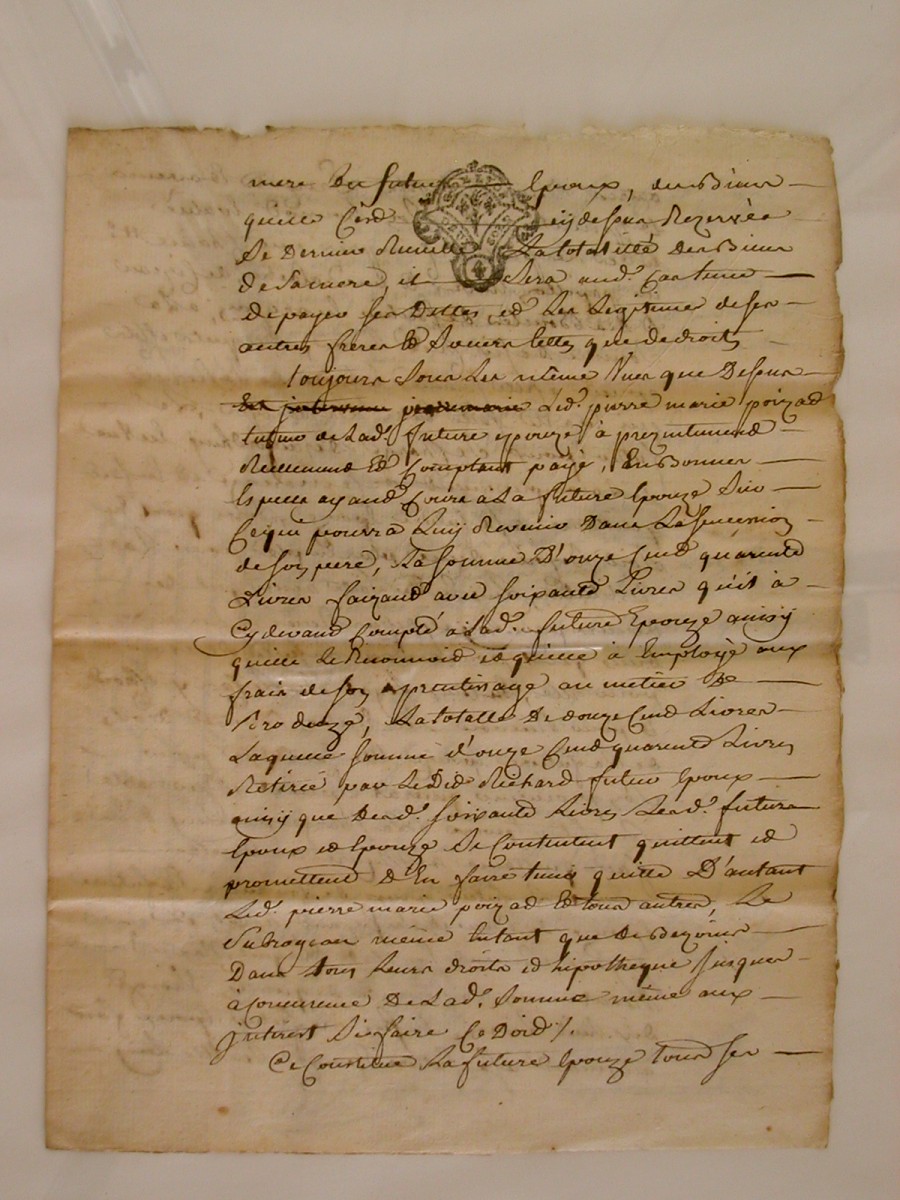 mere du futur Epoux, des Biens
quelle Cede cy dessus Rezervée
Le Dernier Recueille La totalitté Des Biens
de Sa mere, et Sera aud. Cas tenu
de payer ses Dettes, et Les Legitime de ses
autres freres et Soeurs telles que de droits
toujours Sous Les même Vues que Dessus
Led. pierre marie poizad
tuteur de Lad. future epouze à prezentement
Reellement et Comptant payé, En Bonnes
Especes ayand Cours à La future Epouze Sur
Ce qui pourra Luy Revenir Dans La Succession
de Son pere, La Somme D'onze Cend quarente
Livres faizand avec Soixante Livres qu'il à
Cy devand Compté a Lad. future Epouze ainsy
quelle Le Reconnoid et quelle à Employé aux
frais de Son aprentissage au metier De
Brodeuze, La totalle De douze Cend Livres
Laquelle Somme d'onze Cend quarente Livres
Retirée par Le Did Richard futur Epoux
ainsy que Desd. Soixante Livres Lesd. futurs
Epoux et Epouze Se Contentent quittent et
promettent d'En faire tenir quitte D'autant
Led. pierre marie poizad et tous autres, Le
Subrogeant même Entant que De Bezoins
Dans tous Leurs droits et hipotheque Jusques
à Concurence De Lad. Somme même aux
Jnterest Si faire Ce Doid /.
Ce Constitue La future Epouze tous ses